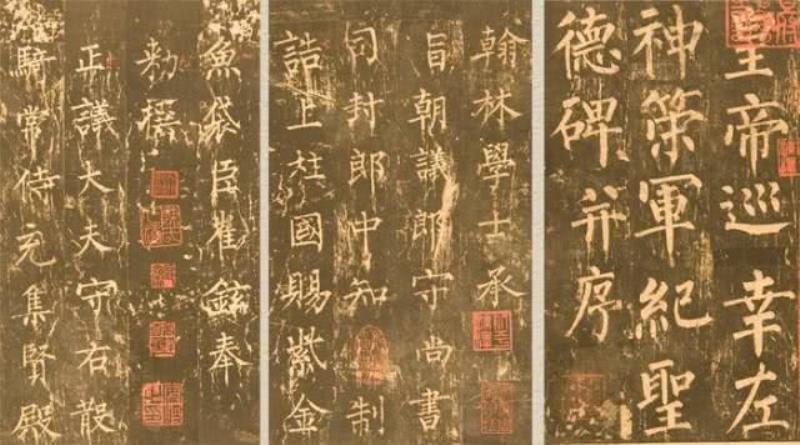 皇帝巡幸左
神策軍紀聖
德碑并序
翰林學士承
旨朝議郎守尚書
司封郎中知制
誥上柱國賜紫金
魚袋臣崔鉉奉
勅撰
正議大夫守右散
騎常侍充集賢殿